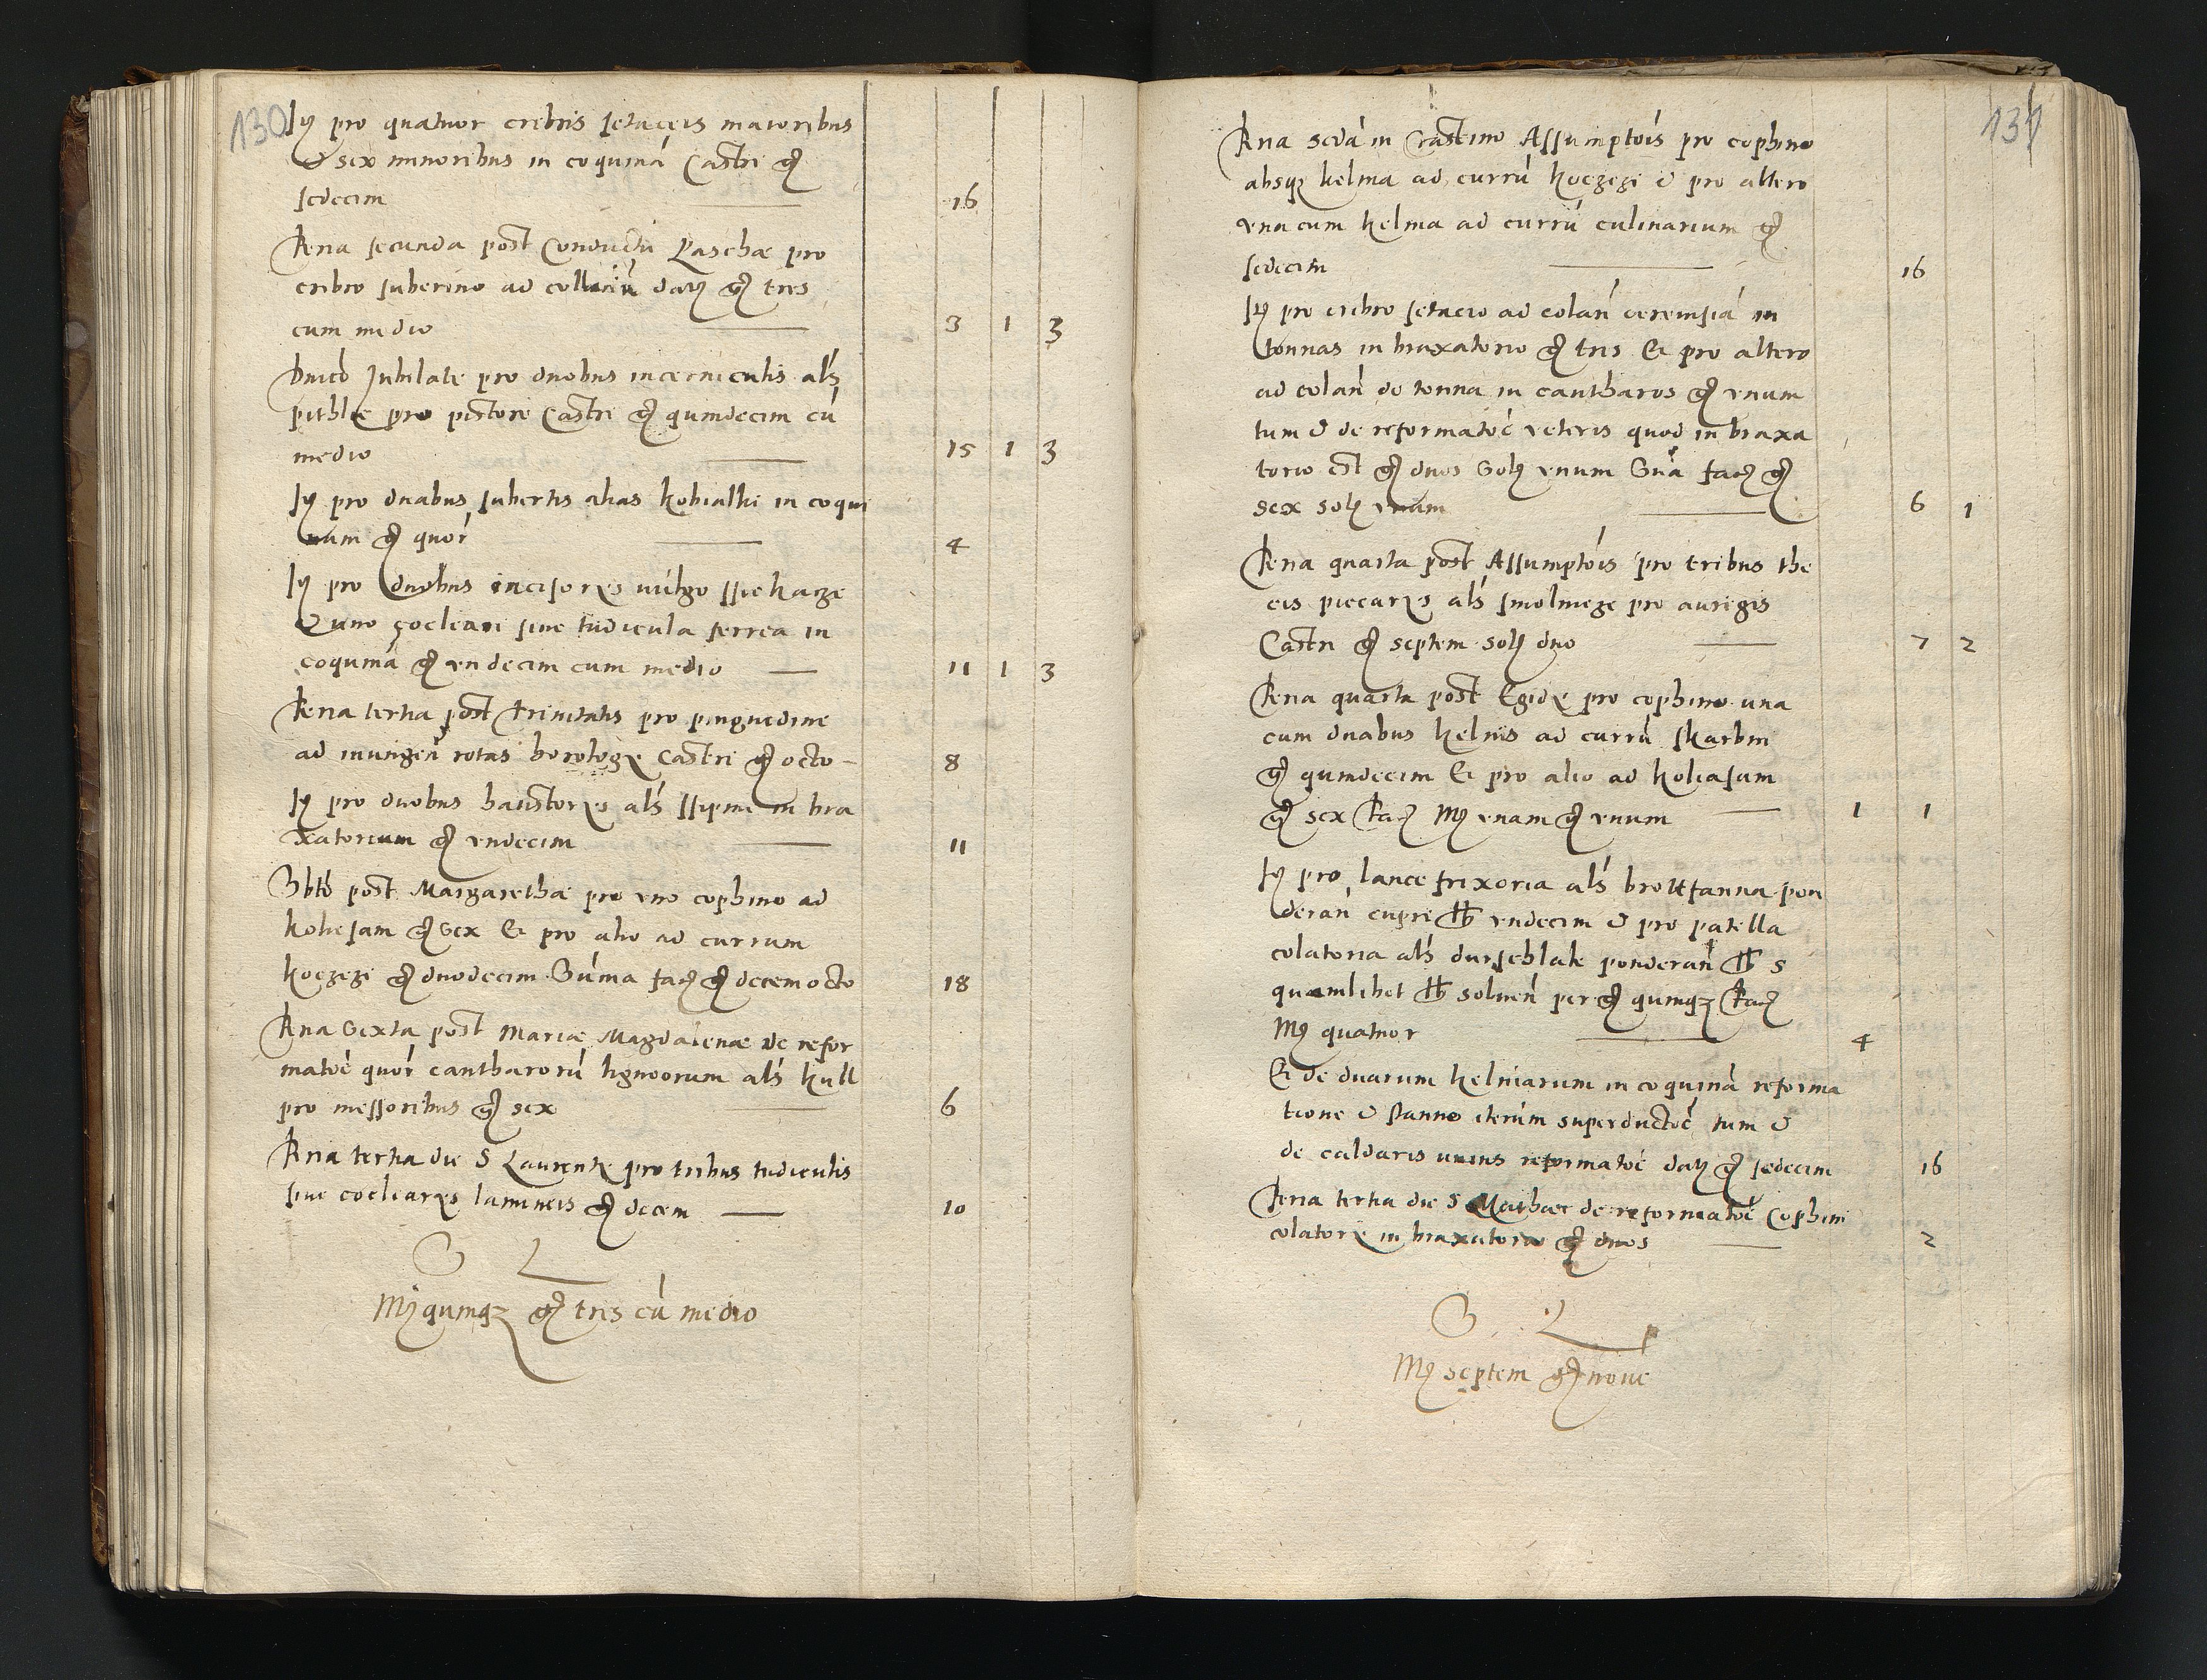 130
Itȝ pro quatuor cribris setaceis maioribus
& sex minoribus in coquinā Castri gͬ
sedecim 16
Feria secunda post Conductū Paschæ pro
cribro suberino ad datȝ gͬ tres
cum medio 3 1 3
Dnico Jubilate pro duobus incerniculis als
pithlie pro pistore Castri gͬ quindecim cū
medio 15 1 3
Itȝ pro duabus subertis alias kobialki in coqui
nam gͬ quor 4
Itȝ pro duobus incisores vulgo siekacze
& uno cocleari siue tudicula ferrea in
coquinā gͬ vndecim cum medio 11 1 3
Feria tertia post Trinitatis pro pinguedine
ad inungen rotas horologӱ Castri gͬ octo 8
Itȝ pro duobus haustorӱs als in bra
xatorium gͬ vndecim 11
Sbto post Margarethæ pro vno cophino ad
koliesam gͬ sex Et pro alio ad currum
koczezi gͬ duodecim Suma facȝ gͬ decemocto 18
Feria Sexta post Mariæ Magdalenæ de refor
matoe quor cantharorū ligneorum als kull
pro messoribus gͬ sex 6
Feria tertia die S Laurentӱ pro tribus tudiculis
siue coclearӱs lamineis gͬ decem 10
S L
Mͬ quinqȝ gͬ tres cū medio
131
Feria scda in Crastino Assumptois pro cophino
absqȝ helma ad currū koczezi & pro altero
vna cum helma ad currū culinarium gͬ
sedecim 16
Itȝ pro cribro setacio ad colan cereuisiā in
tonnas in braxatorio gͬ tres Et pro altero
ad colan de tonna in cantharos gͬ vnum
tum & de reformatoe veteris quod in braxa
torio est gͬ duos Solȝ vnum Sua facȝ gͬ
sex solȝ vnam 6 1
Feria quarta post Assumptois pro tribus the
cis picearӱs als smolnicze pro aurigis
Castri gͬ septem solȝ duo 7 2
Feria quarta post Egidӱ pro cophino una
cum duabus helmis ad currū skarbni
gͬ quindecim Et pro alio ad koliasum
gͬ sex facȝ Mͬ vnam gͬ vnum 1 1
Itȝ pro lance frixoria als brottfanna pon
deran cupri lb vndecim & pro patella
colatoria als durslehlate ponderan lb 5
quamlibet lb soluen per gͬ quinqȝ facȝ
Mͬ quatuor 4
Et de duarum helmarum in coquinā reforma
tione & stanno iterum superductoe tum &
de caldaris unius reformatoe datȝ gͬ sedecim 16
Feria tertia die S Mathæi de reformatoe Cophini
colatorӱ in braxatorio gͬ duos 2
S L
Mͬ septem gͬ noue